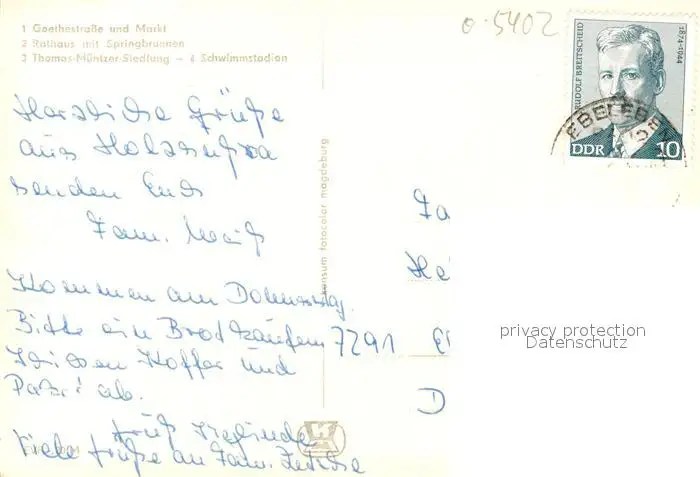 1 Goethestraße und Markt
2 Rathaus mit Springbrunnen
3 Thomas-Müntzer-Siedlung – 4 Schwimmstadion
0.5402
RUDOLF BREITSCHEID
1874-1944
EBELEBEN
DDR 10
Herzliche Grüße
aus Holzsußra
senden Euch
Fam.
Kommen am Donnerstag.
Bitte ein Brot kaufen
Koffer und
ab.
Gruß
Viele Grüße an Fam.
konsum fotocolor magdeburg
Fa
He
7291 El
D
privacy protection
Datenschutz